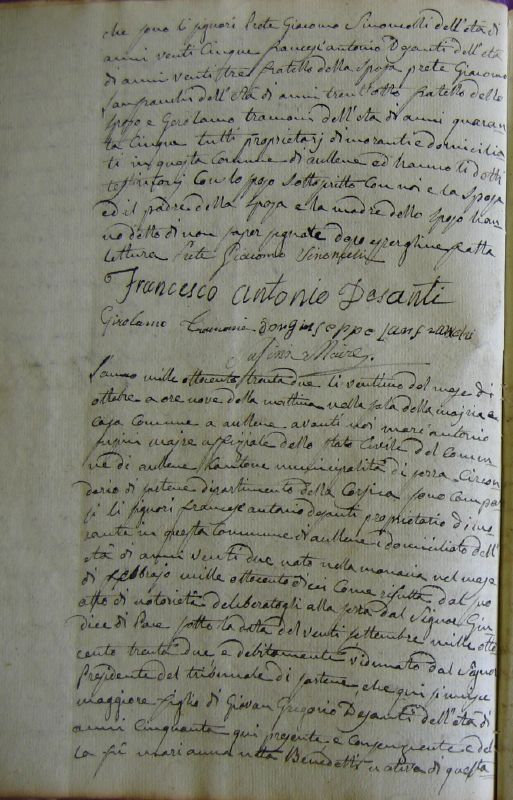 che sono li signori Prete Giacomo Simonetti dell'età di
anni venti Cinque francesc'antonio Desanti dell'età
di anni ventitre fratello della sposa prete Giacomo
Lanfranchi dell'età di anni trent'otto fratello dello
sposo e Gerolamo tramoni dell'età di anni quaran
ta Cinque tutti proprietarj dimoranti e domicilia
ti in questa Comune di aullene ed hanno li dotti
testimonj Con lo sposo sottoscritto Con noi e la sposa
ed il padre della sposa e la madre dello sposo han
no detto di non saper signare dopo esserghine fatta
lettura Prete Giacomo Simonetti
Francesco Antonio Desanti
Girolamo Tramoni don giuseppe Lanfranchi
Maire.
L'anno mille ottocento trenta due li ventuno del mese di
ottobre a ore nove della mattina nella sala della majria e
casa Comune a aullene avanti noi marc'antonio
majre uffiziale dello stato Civile del Comu
ne di aullene Cantone municipalità di serra Circon
dario di sartene dipartimento della Corsica sono Compar
si li signori francesc'antonio desanti proprietario dimo
rante in questa Commune di aullene e domiciliato dell'
età di anni venti due nato nella monacia nel mese
di febbrajo mille ottocento dieci Come resulta dal suo
atto di notorietà deliberatogli alla serra dal Signor Giu
dice di Pace sotto la data del venti settembre mille otto
cento trenta due e debitamente vidimato dal Signor
Presidente del tribunale di sartene, che qui si unisce
maggiore figlio di Giovan Gregorio Desanti dell'età di
anni Cinquanta qui presente e Consenziente e del
la fù mari anna nata Benedetti nativa di questa